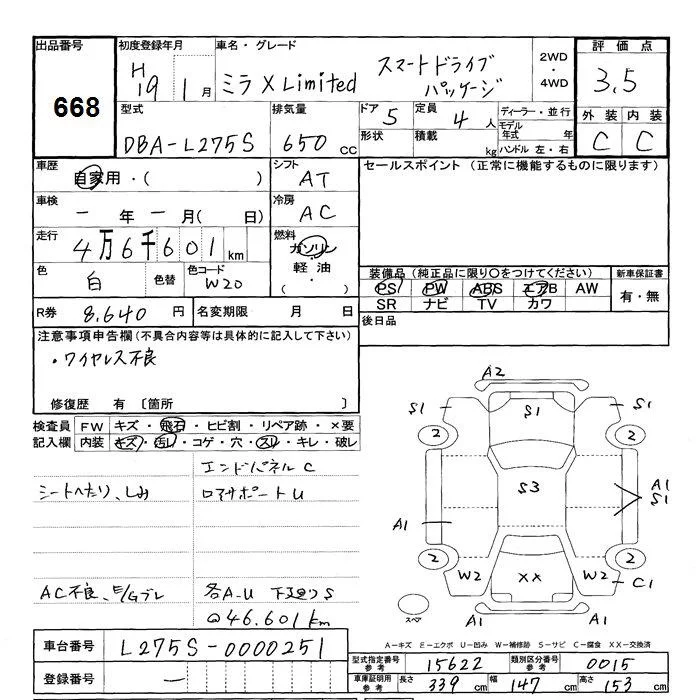 出品番号 668
初度登録年月 H19 1月
車名・グレード ミラ X Limited スマートドライブパッケージ
2WD・4WD
評価点 3.5
外装 C 内装 C
型式 DBA-L275S
排気量 650 cc
ドア 5 定員 4 人
形状 積載 kg
ディーラー・並行
モデル年式 年
ハンドル 左・右
車歴 自家用・( )
シフト AT
セールスポイント (正常に機能するものに限ります)
車検 一 年 一 月( 日)
冷房 AC
走行 4万6千601 km
燃料 ガソリン・軽油・( )
色 白 色替 色コード W20
装備品(純正品に限り○をつけてください) 新車保証書
PS PW ABS エアB AW 有・無
SR ナビ TV カワ
R券 8,640 円 名変期限 月 日
後日品
注意事項申告欄(不具合内容等は具体的に記入して下さい)
・ワイヤレス不良
修復歴 有 〔箇所 〕
検査員記入欄 FW キズ・飛石・ヒビ割・リペア跡・×要
内装 キズ・汚レ・コゲ・穴・スレ・キレ・破レ
エンドパネル C
シートへたり、しみ ロアサポート U
AC不良、E/Gブレ 各A-U 下廻りS
@46.601km
A2
S1 S1 S1
2 2
S3
A1 S1
A1
2 2
W2 XX W2 C1
A1 A1
スペア
A-キズ E-エクボ U-凹み W-補修跡 S-サビ C-腐食 XX-交換済
車台番号 L275S-0000251
登録番号 一
型式指定番号参考 15622 類別区分番号参考 0015
車庫証明用参考 長さ 339 cm 幅 147 cm 高さ 153 cm